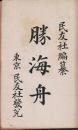 民友社編纂
勝海舟
東京 民友社發兌